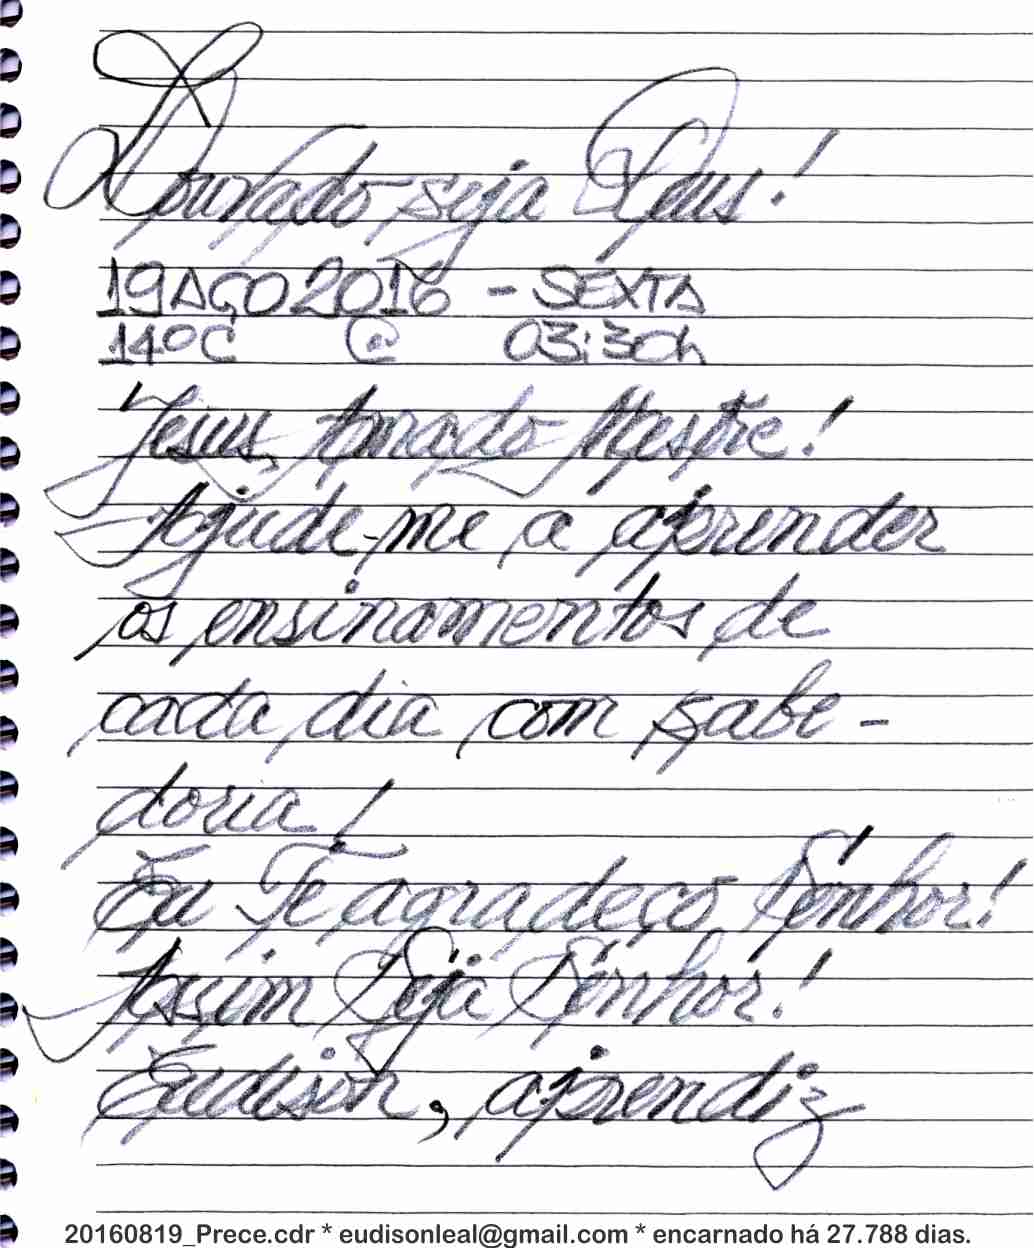 Louvado seja Deus!
19AGO2016 - SEXTA
14ºC @ 03:30h
Jesus, Amado Mestre!
Ajude-me a aprender
os ensinamentos de
cada dia com sabe-
doria!
Eu Te agradeço Senhor!
Assim Seja Senhor!
Eudison, aprendiz
20160819_Prece.cdr * eudisonleal@gmail.com * encarnado há 27.788 dias.